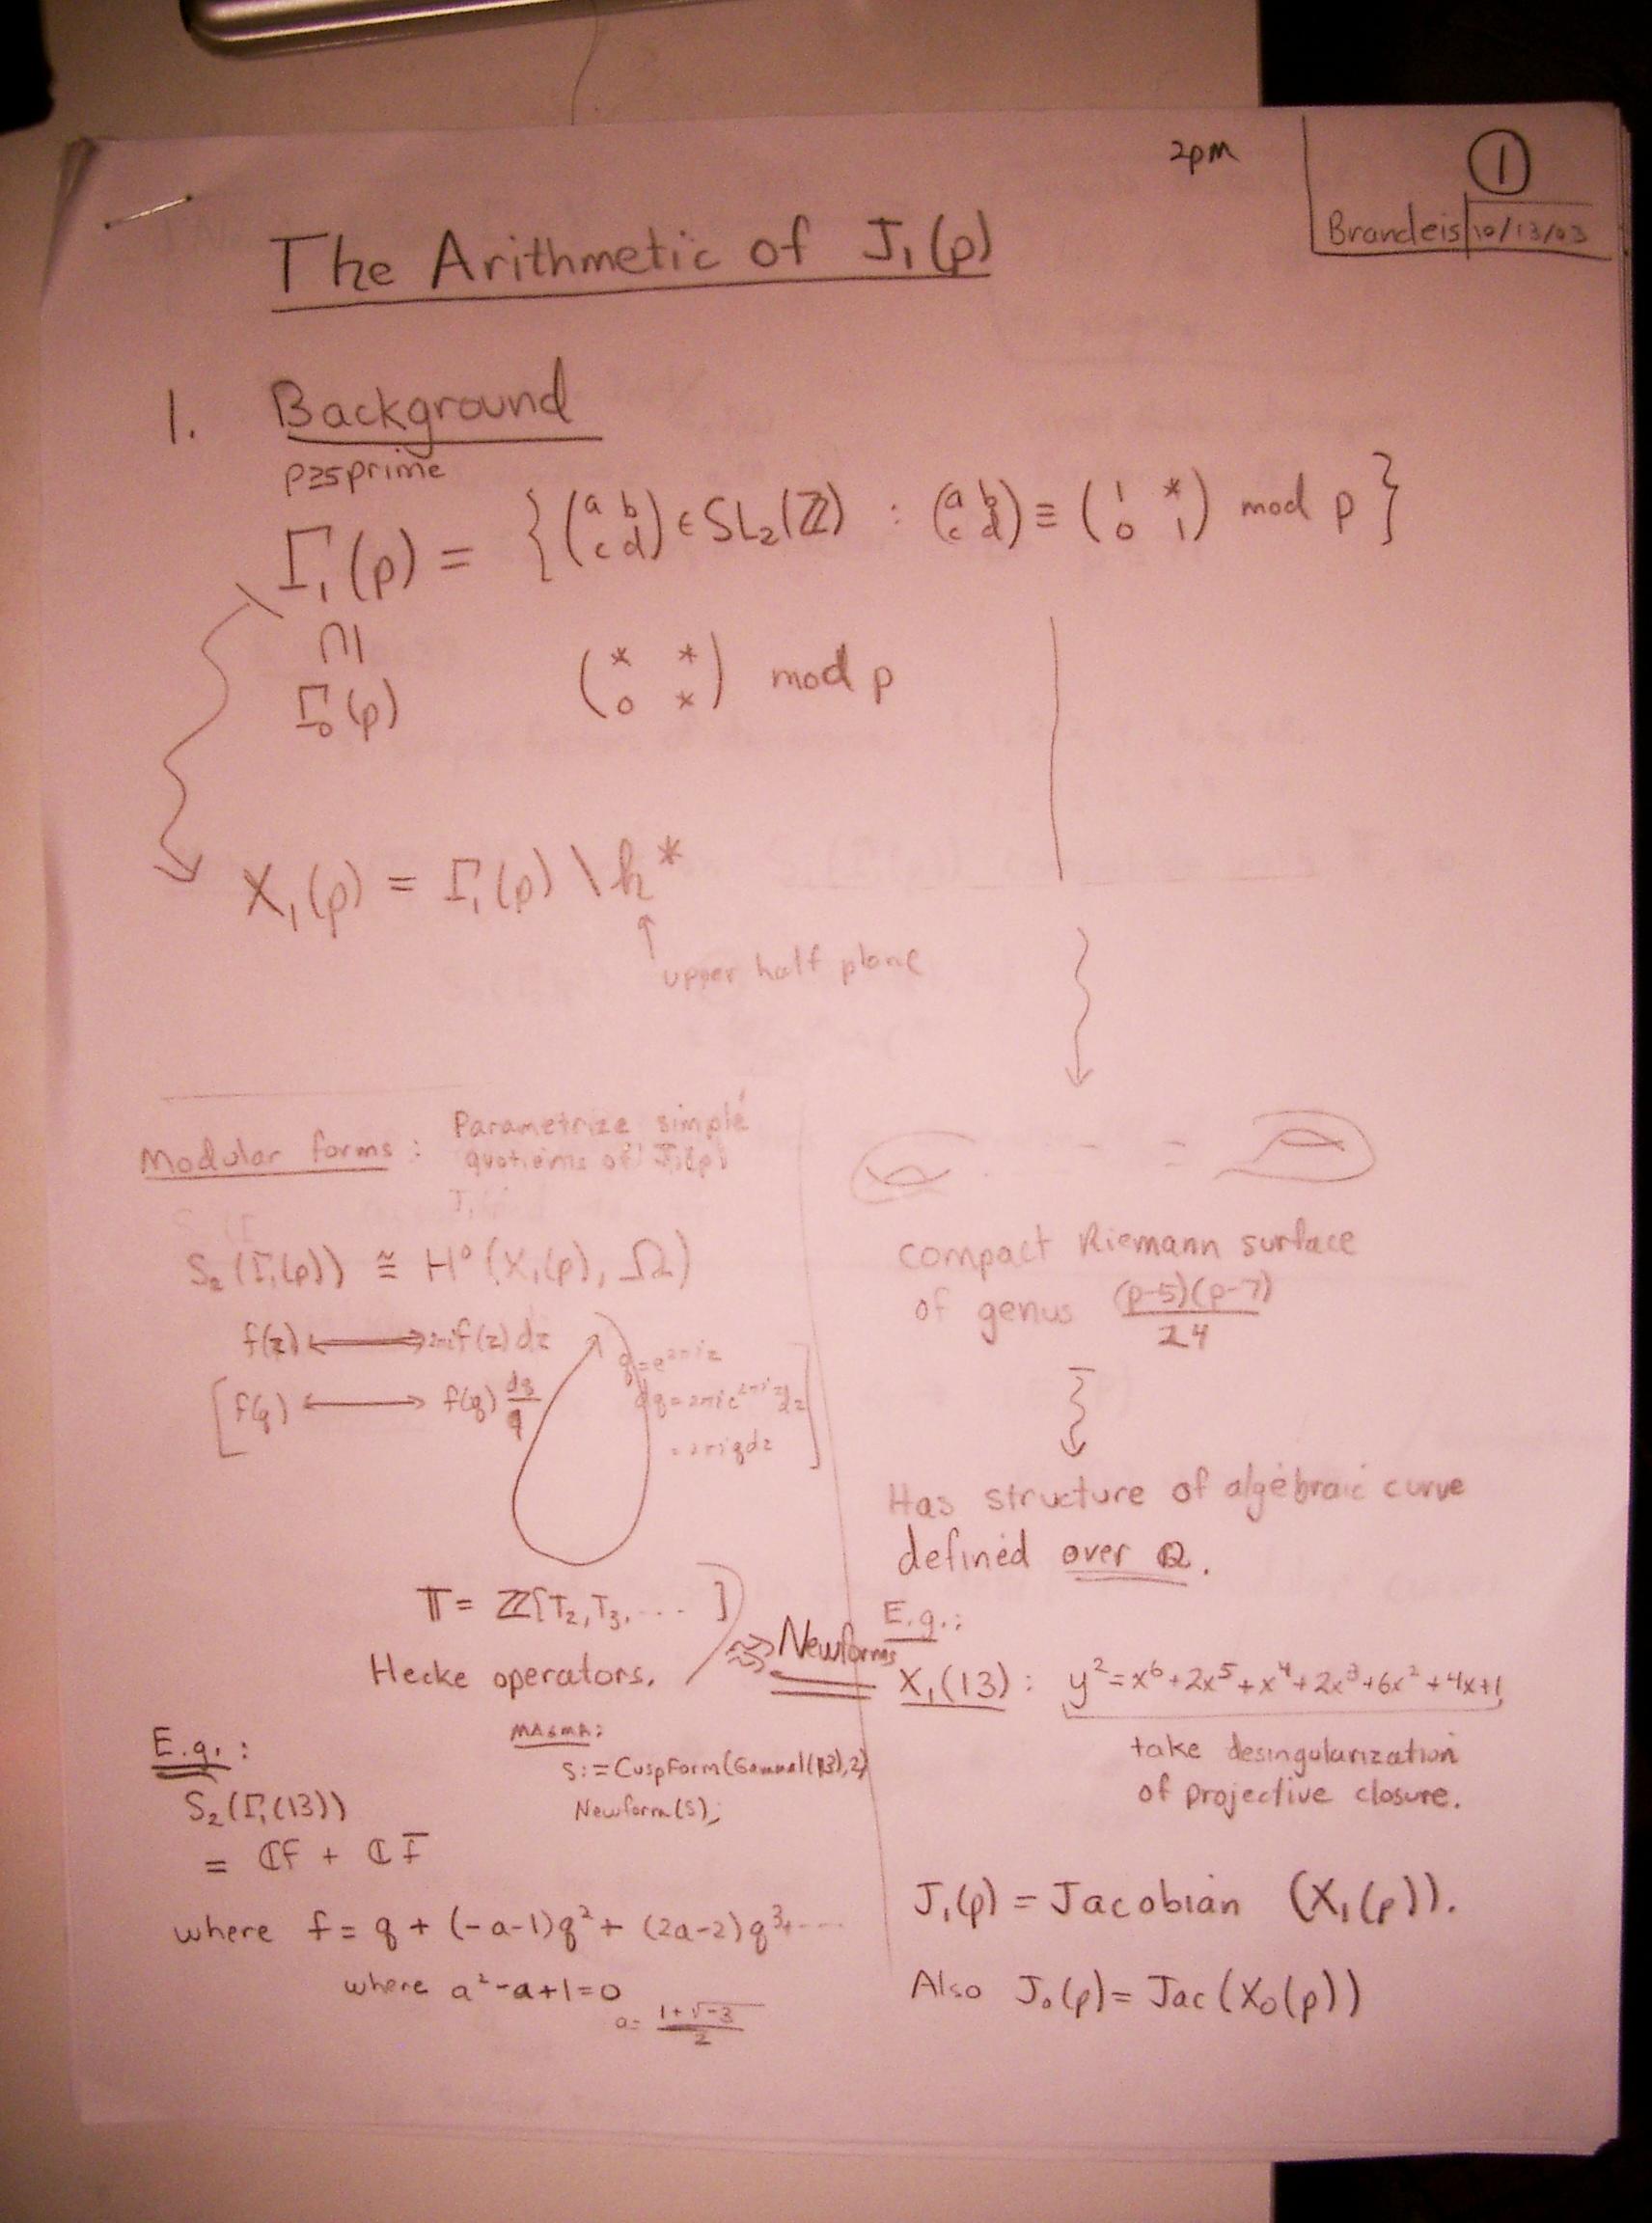 2pm
1
Brandeis 10/13/03
The Arithmetic of J₁(p)
1. Background
p≥5 prime
Γ₁(p) = { (a b c d) ∈ SL₂(ℤ) : (a b c d) ≡ (1 * 0 1) mod p }
∩|
Γ₀(p) (* * 0 *) mod p
X₁(p) = Γ₁(p) \ h*
↑
upper half plane
Modular forms: Parametrize simple
quotients of J₁(p)
S₂(Γ₁(p)) ≅ H⁰(X₁(p), Ω)
f(z) ⟷ 2πi f(z) dz
[ f(q) ⟷ f(q) dq/q
q = e^{2πiz}
dq = 2πi e^{2πiz} dz
= 2πi q dz ]
𝕋 = ℤ[T₂, T₃, ... ]
Hecke operators.
Newforms
E.g.:
S₂(Γ₁(13))
= ℂf + ℂf̄
MAGMA:
S:=CuspForm(Gamma1(13),2)
Newform(S);
where f = q + (-a-1)q² + (2a-2)q³+ ...
where a²-a+1=0
a = (1+√-3)/2
=
compact Riemann surface
of genus (p-5)(p-7)/24
Has structure of algebraic curve
defined over ℚ.
E.g.:
X₁(13): y²=x⁶+2x⁵+x⁴+2x³+6x²+4x+1
take desingularization
of projective closure.
J₁(p) = Jacobian (X₁(p)).
Also J₀(p) = Jac(X₀(p))